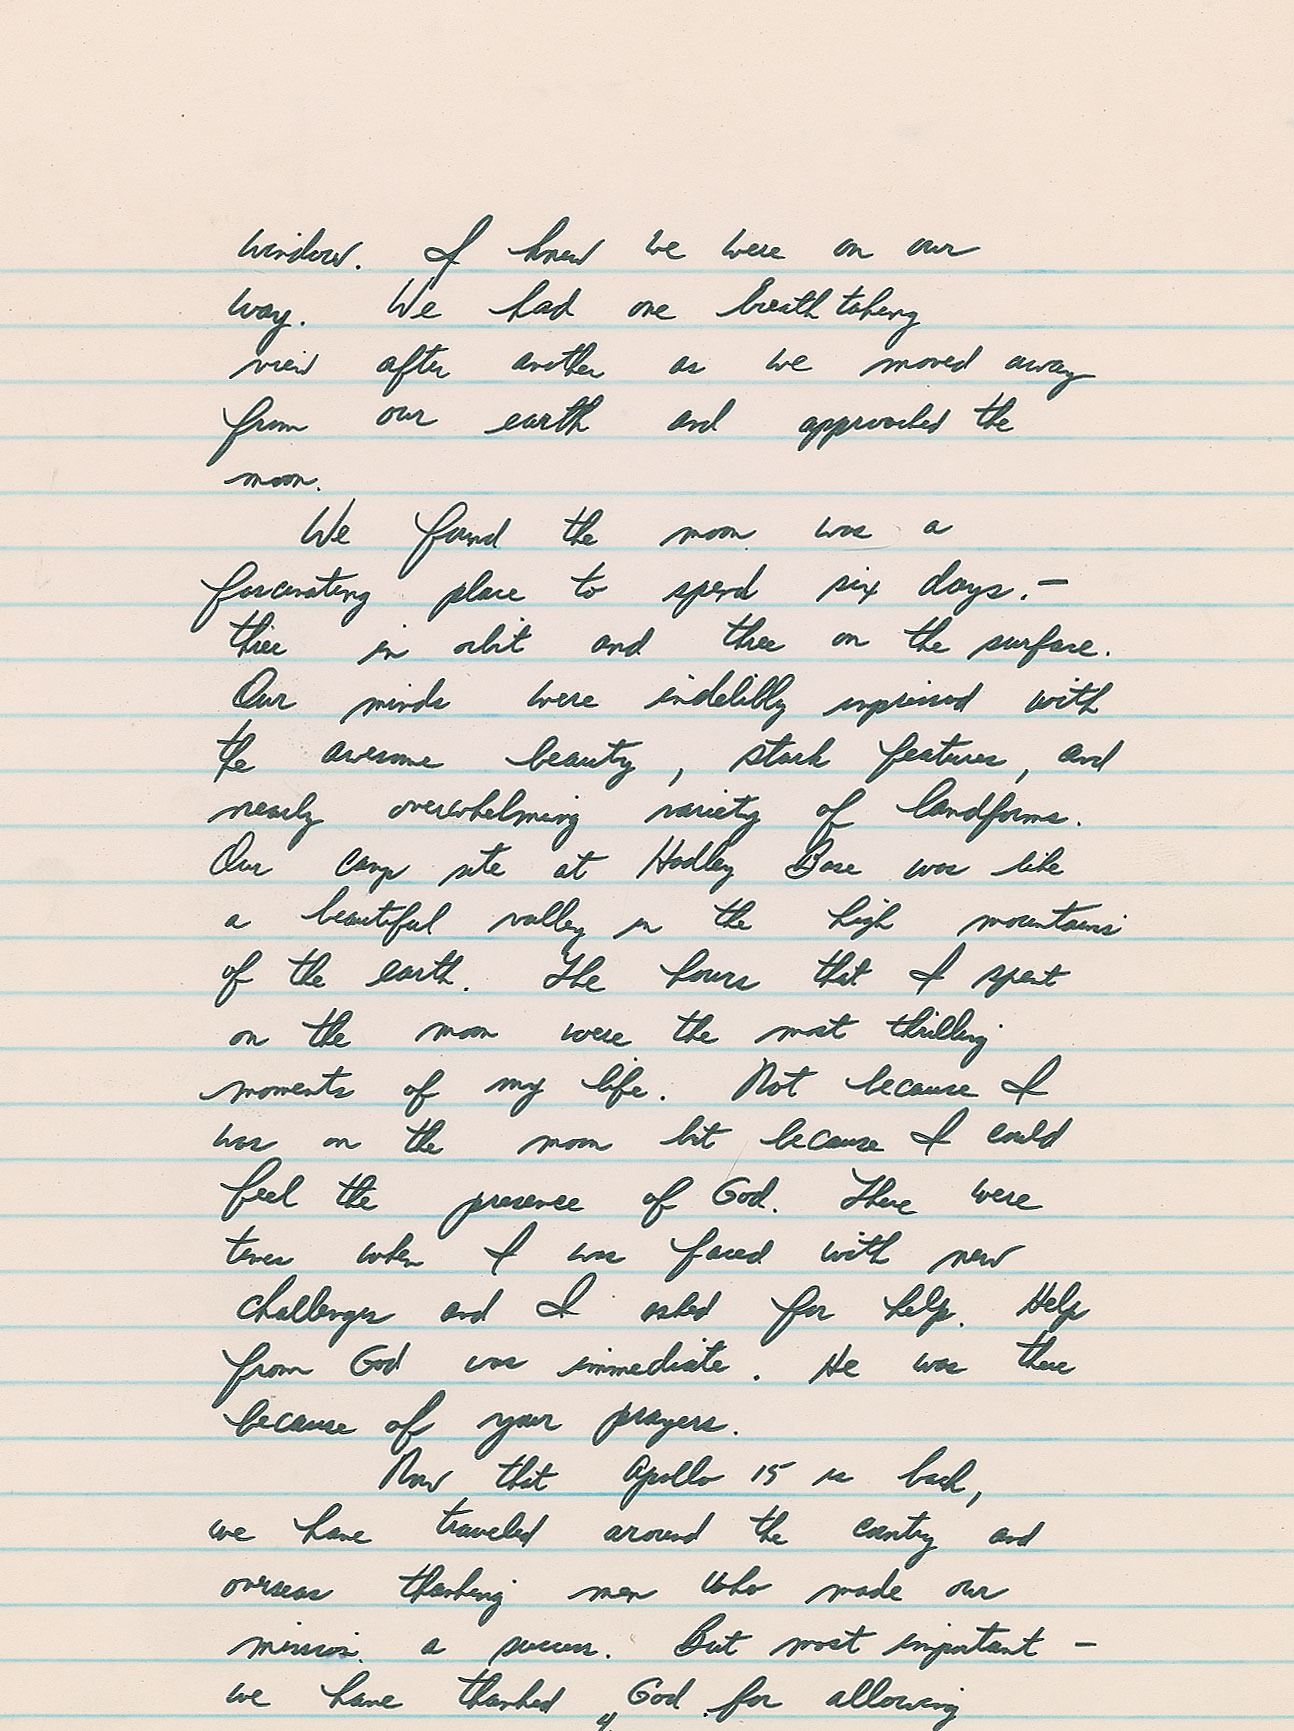 window. I knew we were on our
way. We had one breath taking
view after another as we moved away
from our earth and approached the
moon.
We found the moon was a
fascinating place to spend six days. —
three in orbit and three on the surface.
Our minds were indelibly impressed with
the awesome beauty, stark features, and
nearly overwhelming variety of landforms.
Our camp site at Hadley Base was like
a beautiful valley in the high mountains
of the earth. The hours that I spent
on the moon were the most thrilling
moments of my life. Not because I
was on the moon but because I could
feel the presence of God. There were
times when I was faced with new
challenges and I asked for help. Help
from God was immediate. He was there
because of your prayers.
Now that Apollo 15 is back,
we have traveled around the country and
overseas thanking men who made our
mission a success. But most important —
we have thanked God for allowing
4